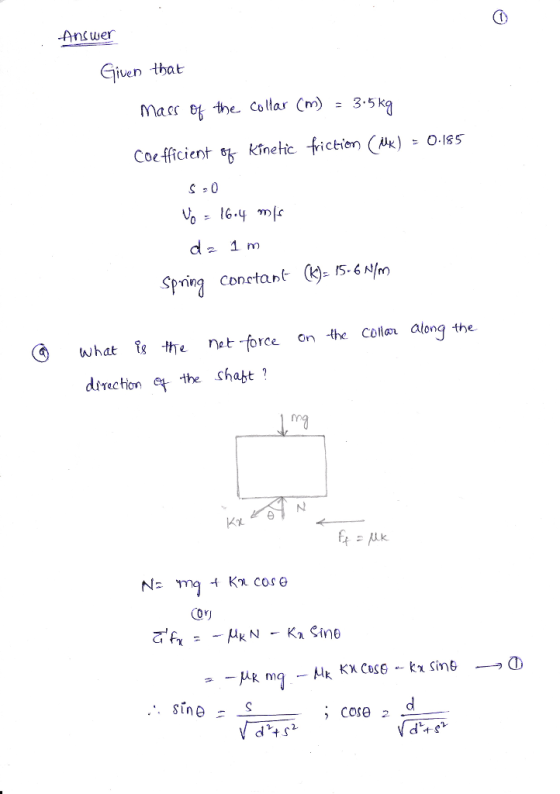 ①
Answer
Given that
Mass of the collar (m) = 3.5 kg
Coefficient of kinetic friction (μk) = 0.185
s = 0
V₀ = 16.4 m/s
d = 1 m
Spring constant (k) = 15.6 N/m
ⓐ What is the net force on the collar along the
direction of the shaft ?
mg
N
Kx θ
Ff = μk
N = mg + Kx cosθ
(or)
Σfx = - μkN - Kx Sinθ
= - μk mg - μk Kx Cosθ - Kx sinθ → ①
∴ sinθ = s / √d²+s² ; cosθ = d / √d²+s²